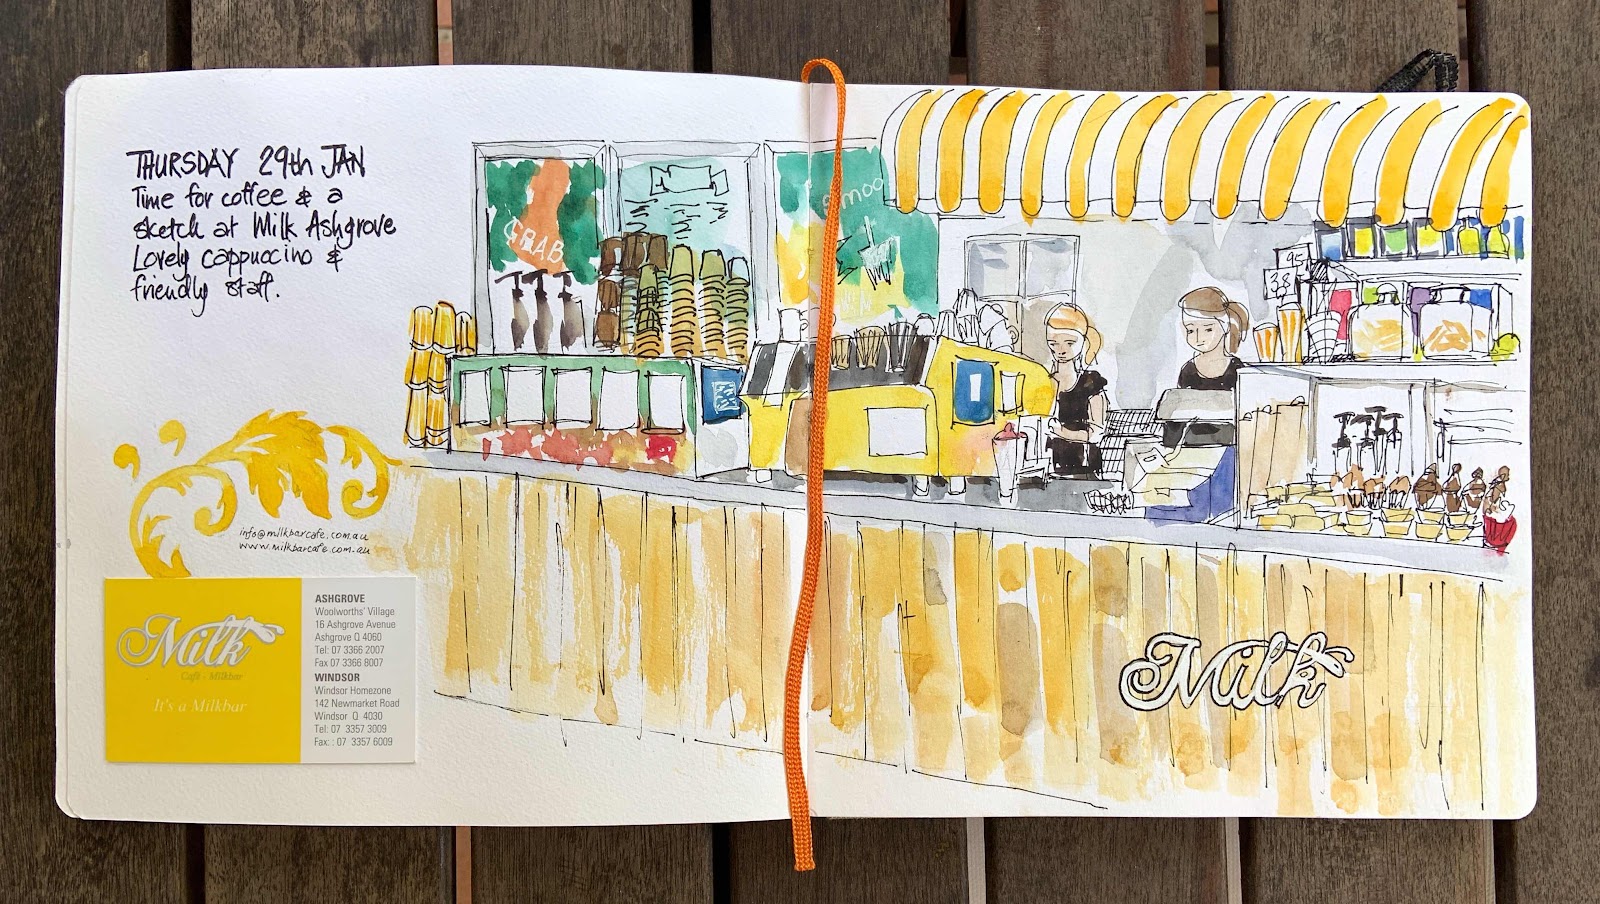 THURSDAY 29th JAN
Time for coffee & a
sketch at Milk Ashgrove
Lovely cappuccino &
friendly staff.
GRAB
SMOO
95
3.8
info@milkbarcafe.com.au
www.milkbarcafe.com.au
Milk
Café - Milkbar
It's a Milkbar
ASHGROVE
Woolworths' Village
16 Ashgrove Avenue
Ashgrove Q 4060
Tel: 07 3366 2007
Fax 07 3366 8007
WINDSOR
Windsor Homezone
142 Newmarket Road
Windsor Q 4030
Tel: 07 3357 3009
Fax: : 07 3357 6009
Milk